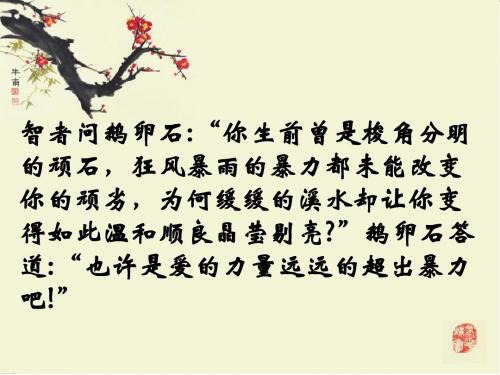 智者问鹅卵石:“你生前曾是梭角分明
的顽石，狂风暴雨的暴力都未能改变
你的顽劣，为何缓缓的溪水却让你变
得如此温和顺良晶莹剔亮?”鹅卵石答
道:“也许是爱的力量远远的超出暴力
吧!”